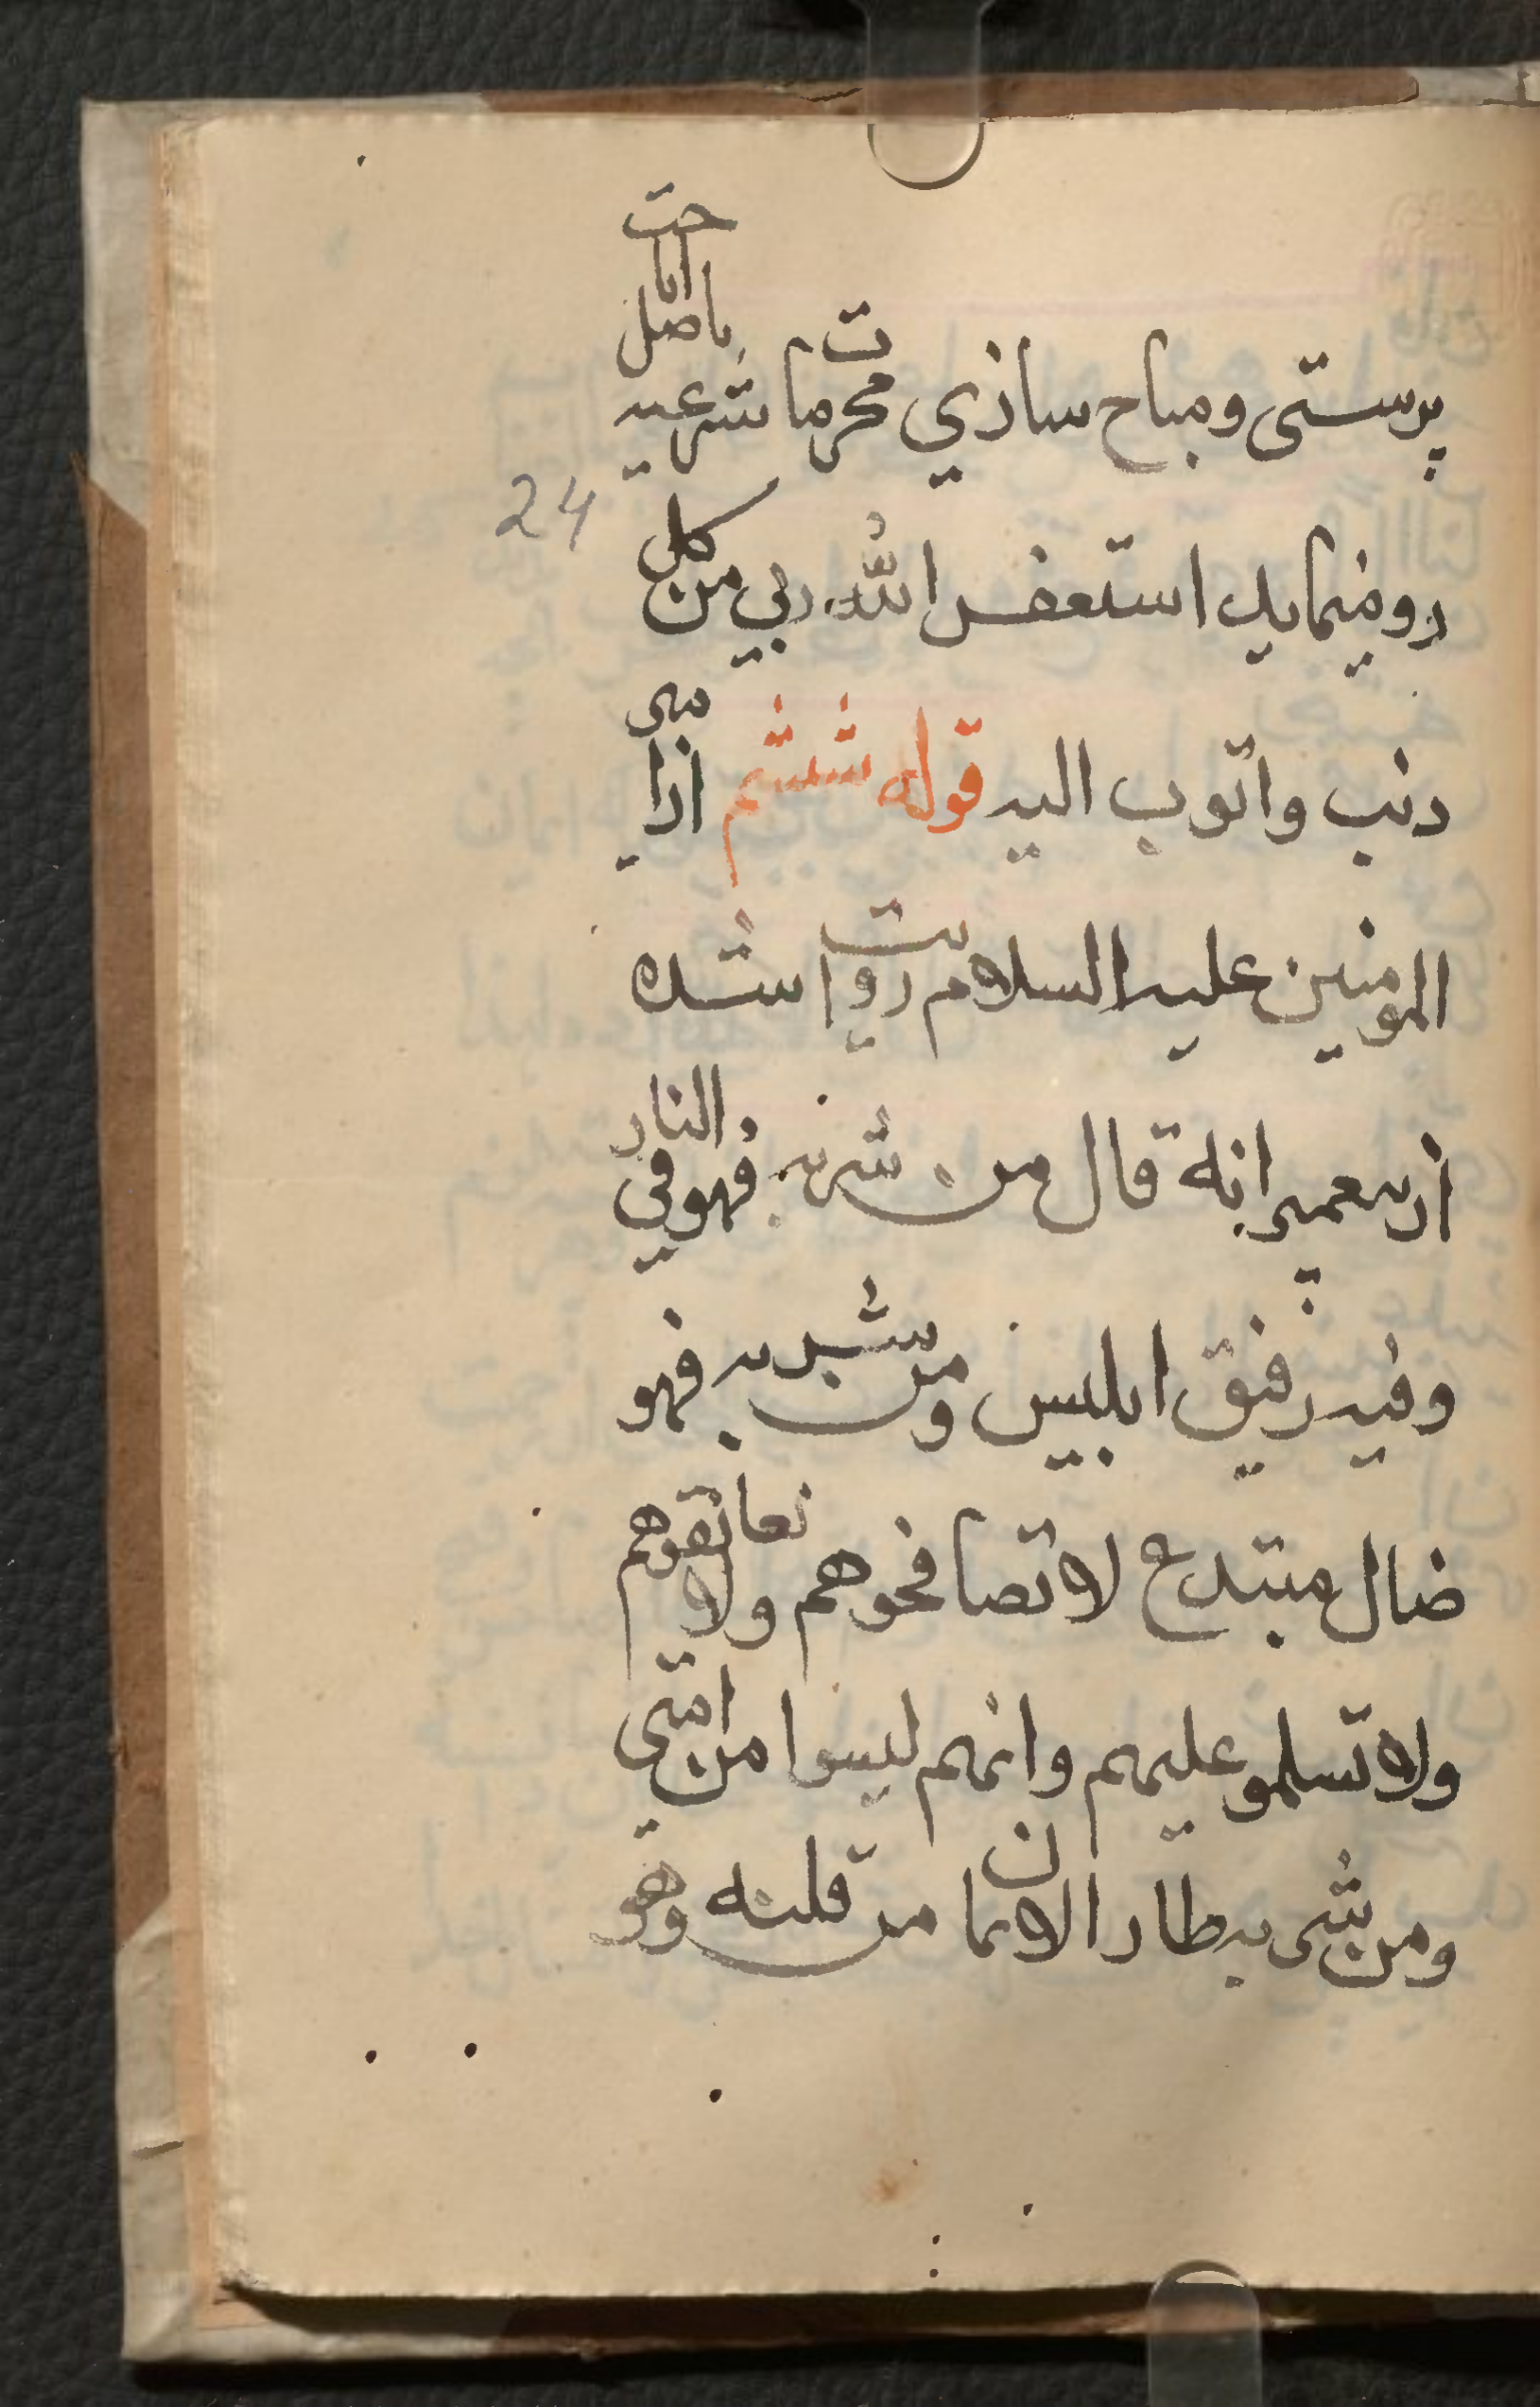 پرستی و مباح سازي محرمات شرعیه باصل اباحت
24
رو مینماید استعفر الله ربي من كل
دنب واتوب الیه قوله ششم از امیر
المومنین علیه السلام روایت شده
انه قال من شربه فهو في النار
وفیه رفیق ابلیس ومن شبر به فهو
ضال مبتدع لا تصافحوهم ولا تعانقوهم
ولا تسلمو علیهم وانهم لیسوا من امتي
ومن شی به طار الایمان من قلبه وهو